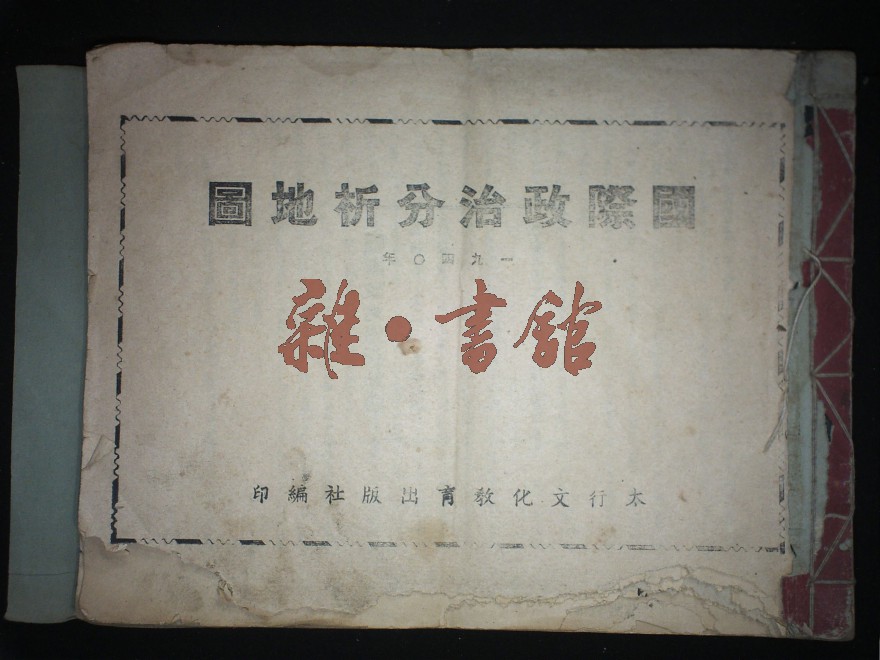 國際政治分析地圖
一九四〇年
雜·書館
太行文化敎育出版社編印